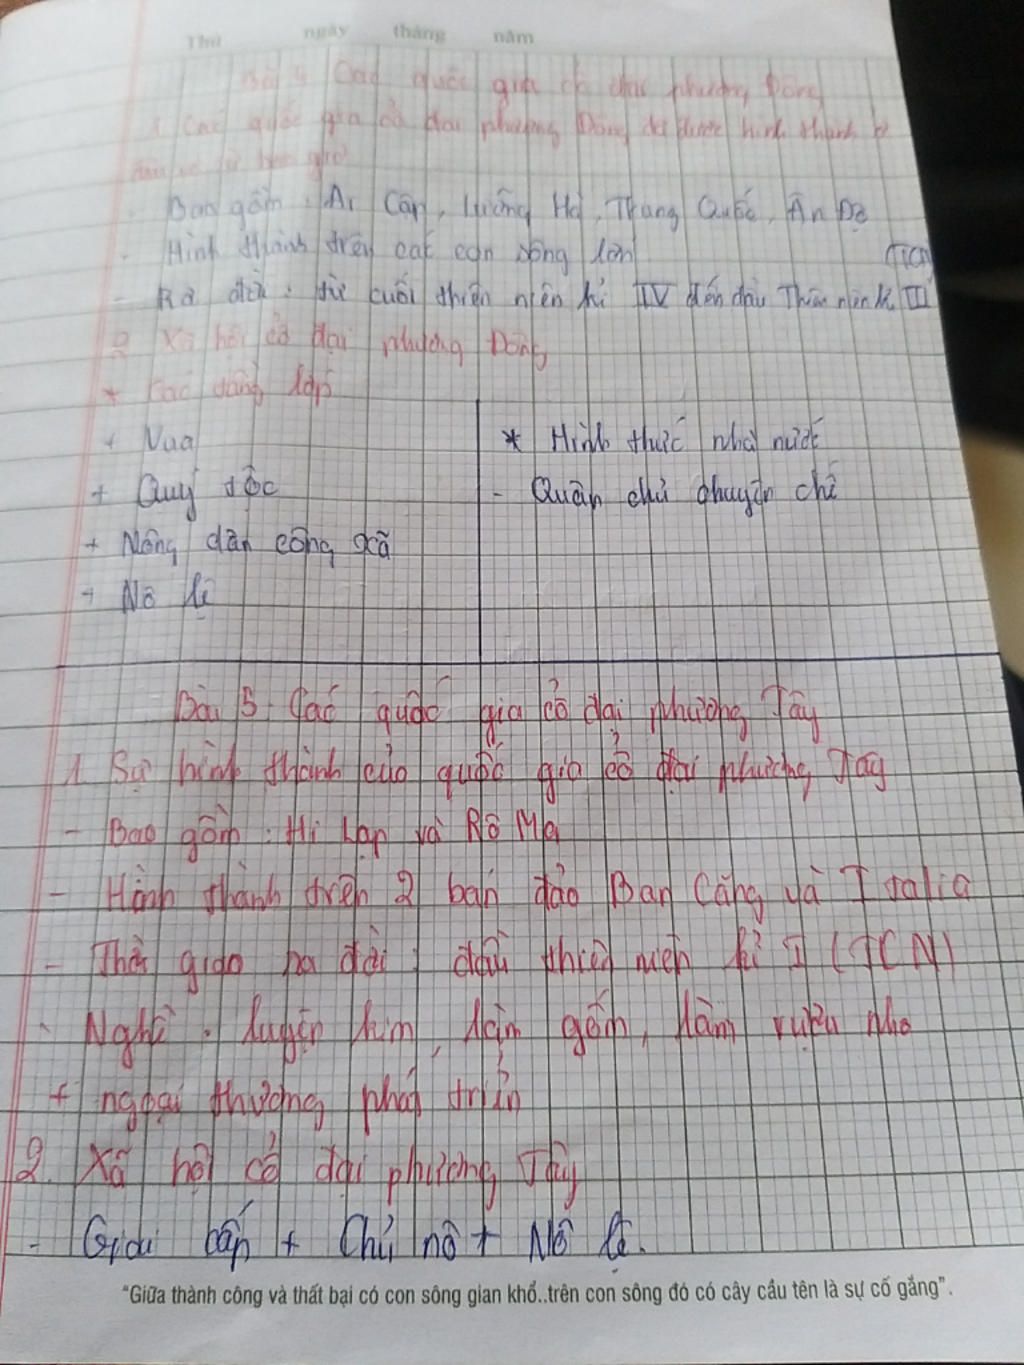 Thứ ngày tháng năm
Bài 4 Các quốc gia cổ đại phương Đông
1 Các quốc gia cổ đại phương Đông đã được hình thành ở
đâu và từ bao giờ
- Bao gồm : Ai Cập, Lưỡng Hà, Trung Quốc, Ấn Độ
- Hình thành trên các con sông lớn (TCN)
- Ra đời : từ cuối thiên niên kỉ IV đến đầu Thiên niên kỉ III
2 Xã hội cổ đại phương Đông
* Các tầng lớp
+ Vua
+ Quý tộc
+ Nông dân công xã
+ Nô lệ
* Hình thức nhà nước
- Quân chủ chuyên chế
Bài 5 Các quốc gia cổ đại phương Tây
1. Sự hình thành của quốc gia cổ đại phương Tây
- Bao gồm : Hi Lạp và Rô Ma
- Hình thành trên 2 bán đảo Ban Căng và Italia
- Thời gian ra đời : đầu thiên niên kỉ I (TCN)
- Nghề : luyện kim, làm gốm, làm rượu nho
+ ngoại thương phát triển
2. Xã hội cổ đại phương Tây
- Giai cấp + Chủ nô + Nô lệ.
"Giữa thành công và thất bại có con sông gian khổ..trên con sông đó có cây cầu tên là sự cố gắng".